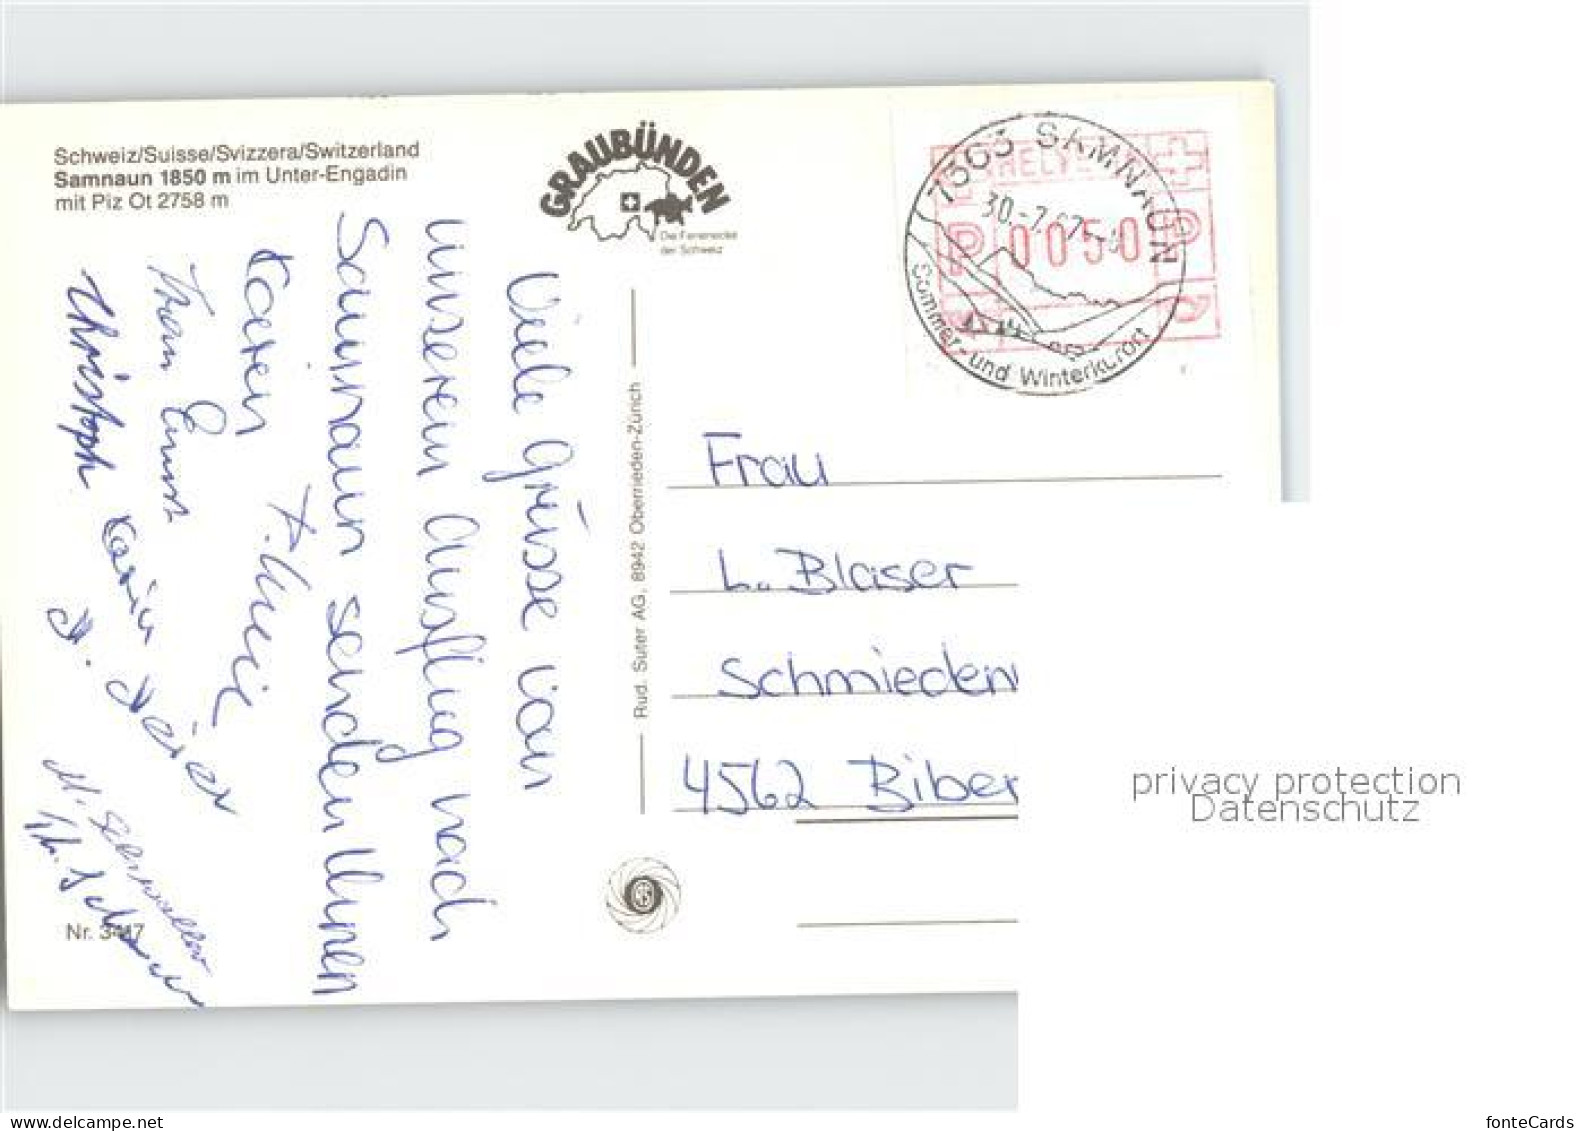 Schweiz/Suisse/Svizzera/Switzerland
Samnaun 1850 m im Unter-Engadin
mit Piz Ot 2758 m
GRAUBÜNDEN
Die Ferienecke
der Schweiz
7563 SAMNAUN
30.-7.87
Sommer- und Winterkurort
HELV
P 0050 P
Viele Grüsse von
unserem Ausflug nach
Samnaun senden Ihnen
Karen
Ernst
Christoph
Karin
M. Schwaller
Rud. Suter AG, 8942 Oberrieden-Zürich
Frau
L. Blaser
Schmieden
4562 Biber
Nr. 3417
privacy protection
Datenschutz
the-collection.net
fonteCards